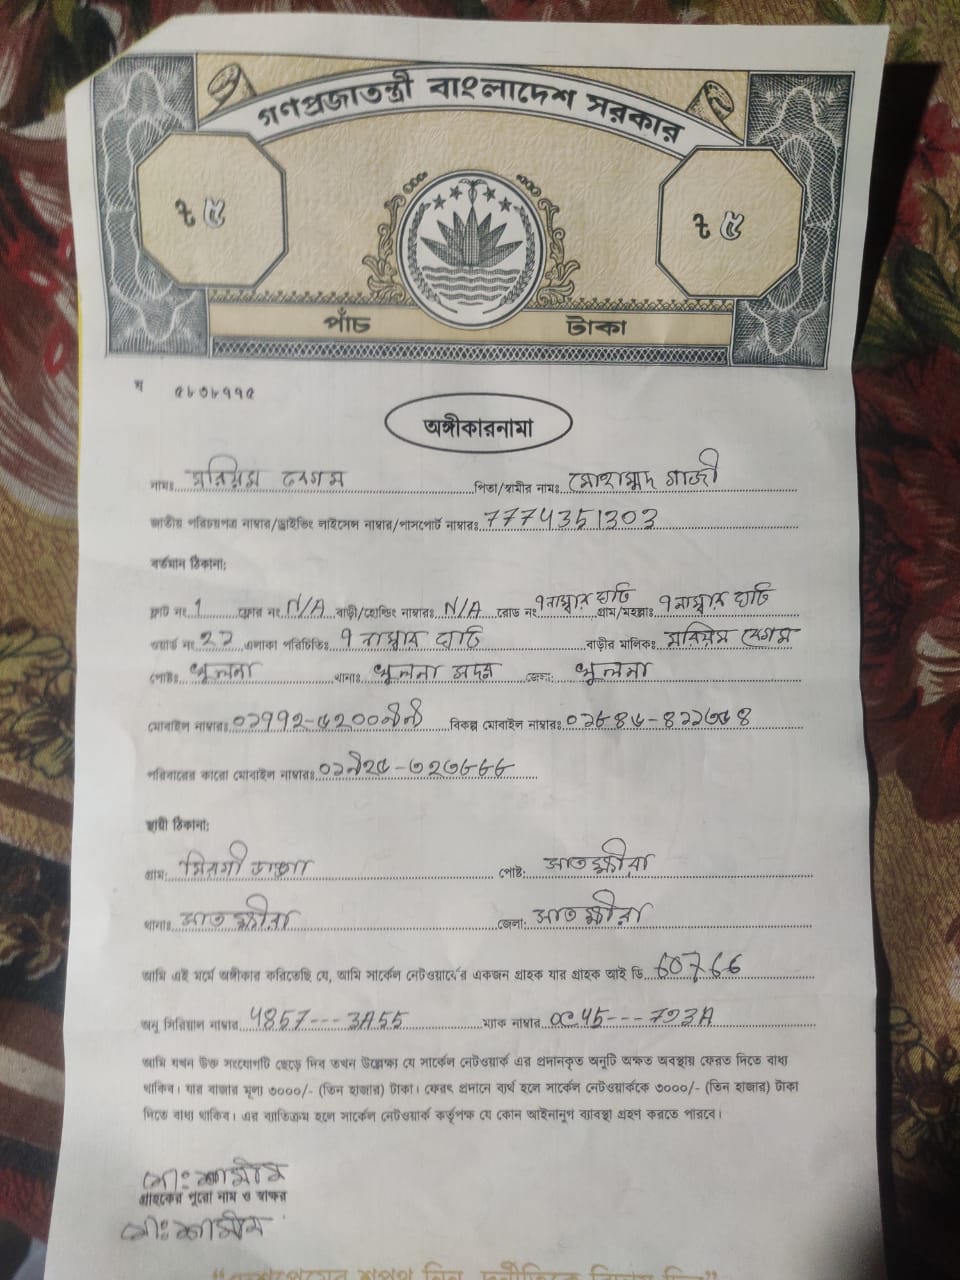 গণপ্রজাতন্ত্রী বাংলাদেশ সরকার
৳ ৫ ৳ ৫
পাঁচ টাকা
অঙ্গীকারনামা
নামঃ মরিয়ম বেগম পিতা/স্বামীর নামঃ মোহাম্মদ গাজী
জাতীয় পরিচয়পত্র নাম্বার/ড্রাইভিং লাইসেন্স নাম্বার/পাসপোর্ট নাম্বারঃ 7774351303
বর্তমান ঠিকানা:
ফ্লাট নং 1 ফ্লোর নং N/A বাড়ী/হোল্ডিং নাম্বারঃ N/A রোড নং ৭ নাম্বার ঘাট গ্রাম/মহল্লাঃ ৭ নাম্বার ঘাট
ওয়ার্ড নং ২১ এলাকা পরিচিতিঃ ৭ নাম্বার ঘাট বাড়ীর মালিকঃ মরিয়ম বেগম
পোষ্টঃ খুলনা থানাঃ খুলনা সদর জেলা: খুলনা
মোবাইল নাম্বারঃ বিকল্প মোবাইল নাম্বারঃ
পরিবারের কারো মোবাইল নাম্বারঃ
স্থায়ী ঠিকানা:
গ্রাম: পোষ্ট: সাতক্ষীরা
থানাঃ সাতক্ষীরা জেলা: সাতক্ষীরা
আমি এই মর্মে অঙ্গীকার করিতেছি যে, আমি সার্কেল নেটওয়ার্কের একজন গ্রাহক যার গ্রাহক আই ডি 60766
অনু সিরিয়াল নাম্বার 4857---3A55 ম্যাক নাম্বার 0C45---793A
আমি যখন উক্ত সংযোগটি ছেড়ে দিব তখন উল্লেক্ষ্য যে সার্কেল নেটওয়ার্ক এর প্রদানকৃত অনুটি অক্ষত অবস্থায় ফেরত দিতে বাধ্য
থাকিব। যার বাজার মূল্য ৩০০০/- (তিন হাজার) টাকা। ফেরৎ প্রদানে ব্যর্থ হলে সার্কেল নেটওয়ার্ককে ৩০০০/- (তিন হাজার) টাকা
দিতে বাধ্য থাকিব। এর ব্যতিক্রম হলে সার্কেল নেটওয়ার্ক কর্তৃপক্ষ যে কোন আইনানুগ ব্যবস্থা গ্রহণ করতে পারবে।
মোঃ শামীম
গ্রাহকের পুরো নাম ও স্বাক্ষর
মোঃ শামীম